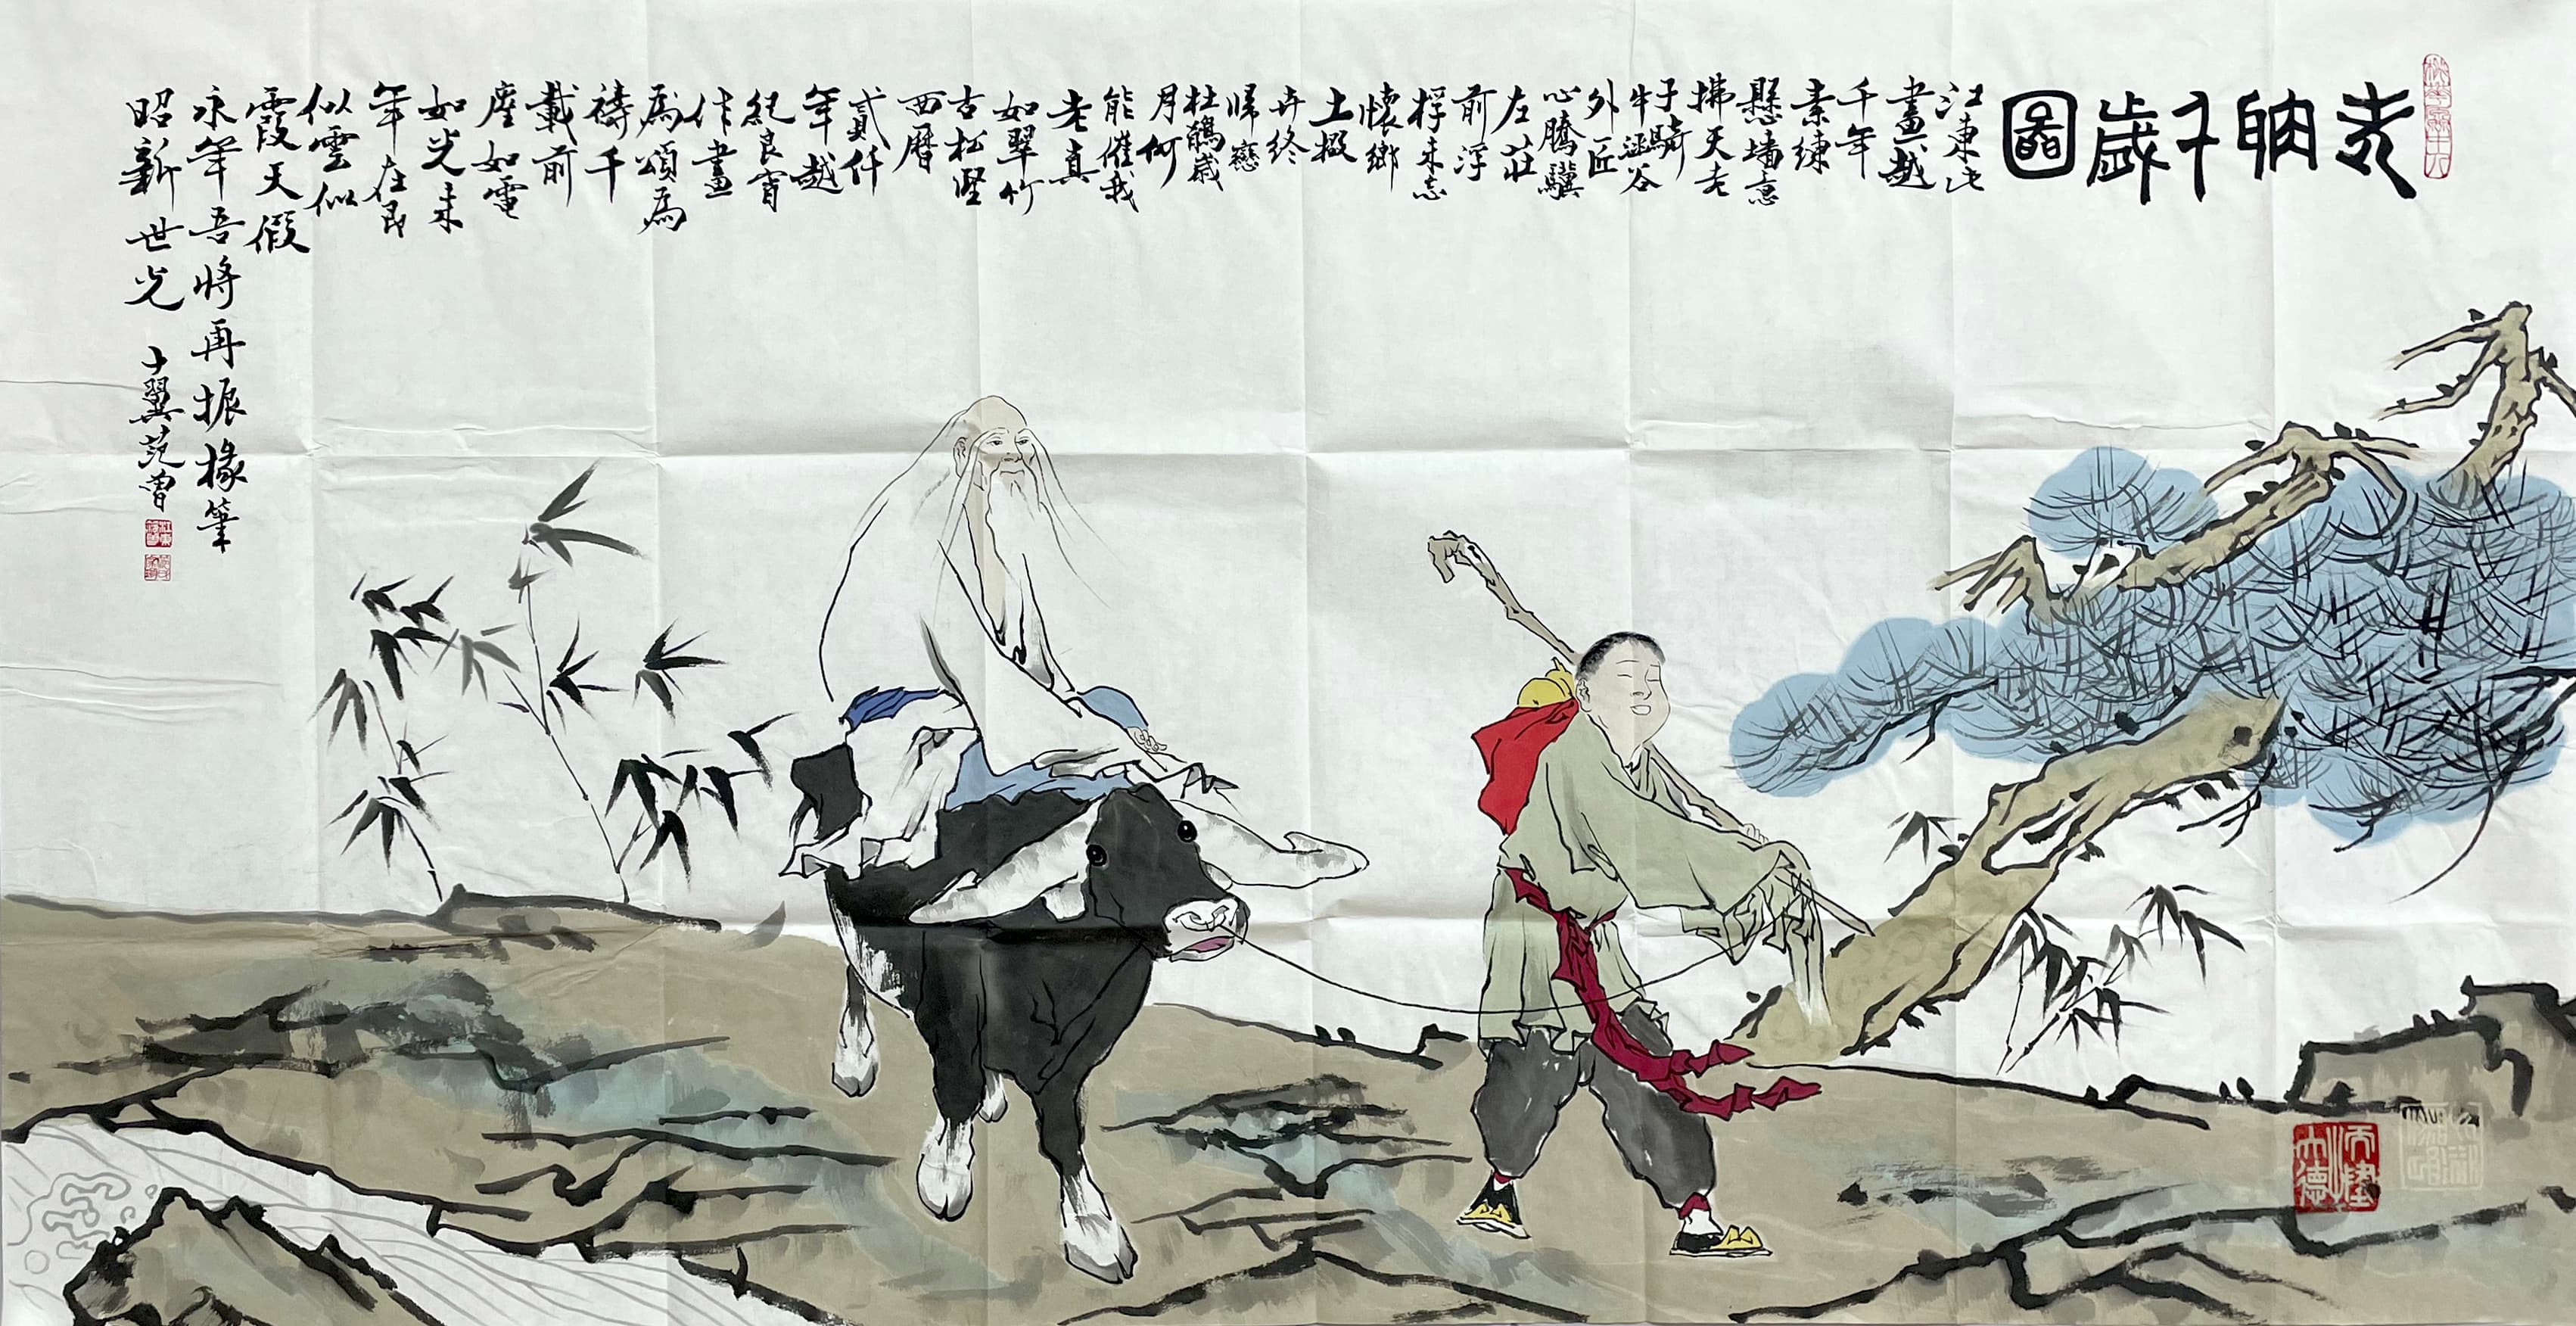 老聃千歲圖
江東此
畫越
千年
素練
懸墻意
拂天老
子騎
牛涵谷
外匠
心騰驥
左莊
前浮
桴未忘
懷鄉
土掇
卉終
歸戀
杜鵑歲
月何
能催我
老真
如翠竹
古松堅
西曆
貳仟
年越
紀良宵
作畫
爲頌爲
禱千
載前
塵如電
如光未
年在
似雲似
霞天假
永年吾將再振椽筆
昭新世光 十翼范曾